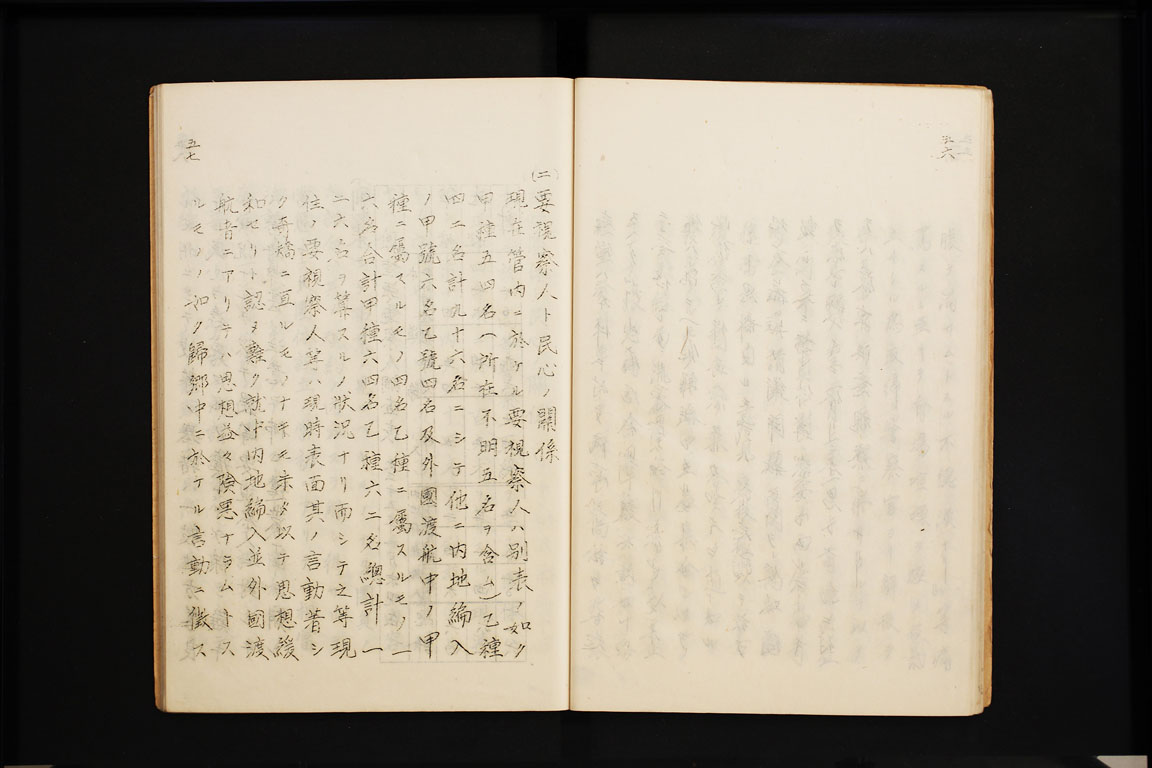 五六
(二)要視察人ト民心ノ關係
現在管内ニ於ケル要視察人ハ別表ノ如ク
甲種五四名(所在不明五名ヲ含ム)乙種
四二名計九十六名ニシテ他ニ内地編入
ノ甲號六名乙號四名及外國渡航中ノ甲
種ニ屬スルモノ四名乙種ニ屬スルモノ一
六名合計甲種六四名乙種六二名總計一
二六名ヲ算スルノ狀況ナリ而シテ之等現
在ノ要視察人等ハ現時表面其ノ言動著シ
ク奇矯ニ亘ルモノナキモ未タ以テ思想緩
和セリト認メ難ク就中内地編入並外國渡
航者ニアリテハ思想益々險惡ナラムトス
ルモノノ如ク歸鄉中ニ於ケル言動ニ徵ス
五七